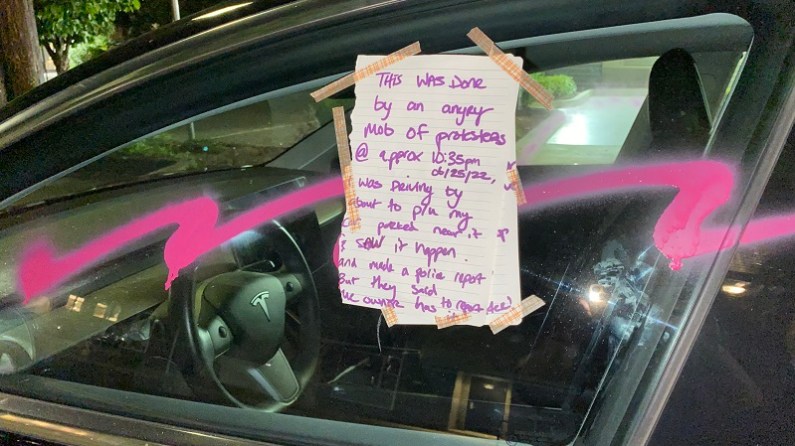 THIS WAS DONE
by an angry
Mob of protesters
@ approx 10:35pm
06/25/22,
was Driving by
bout to p/u my
parked near it &
i SAW it happen.
and made a police report
But they said
owner has to report